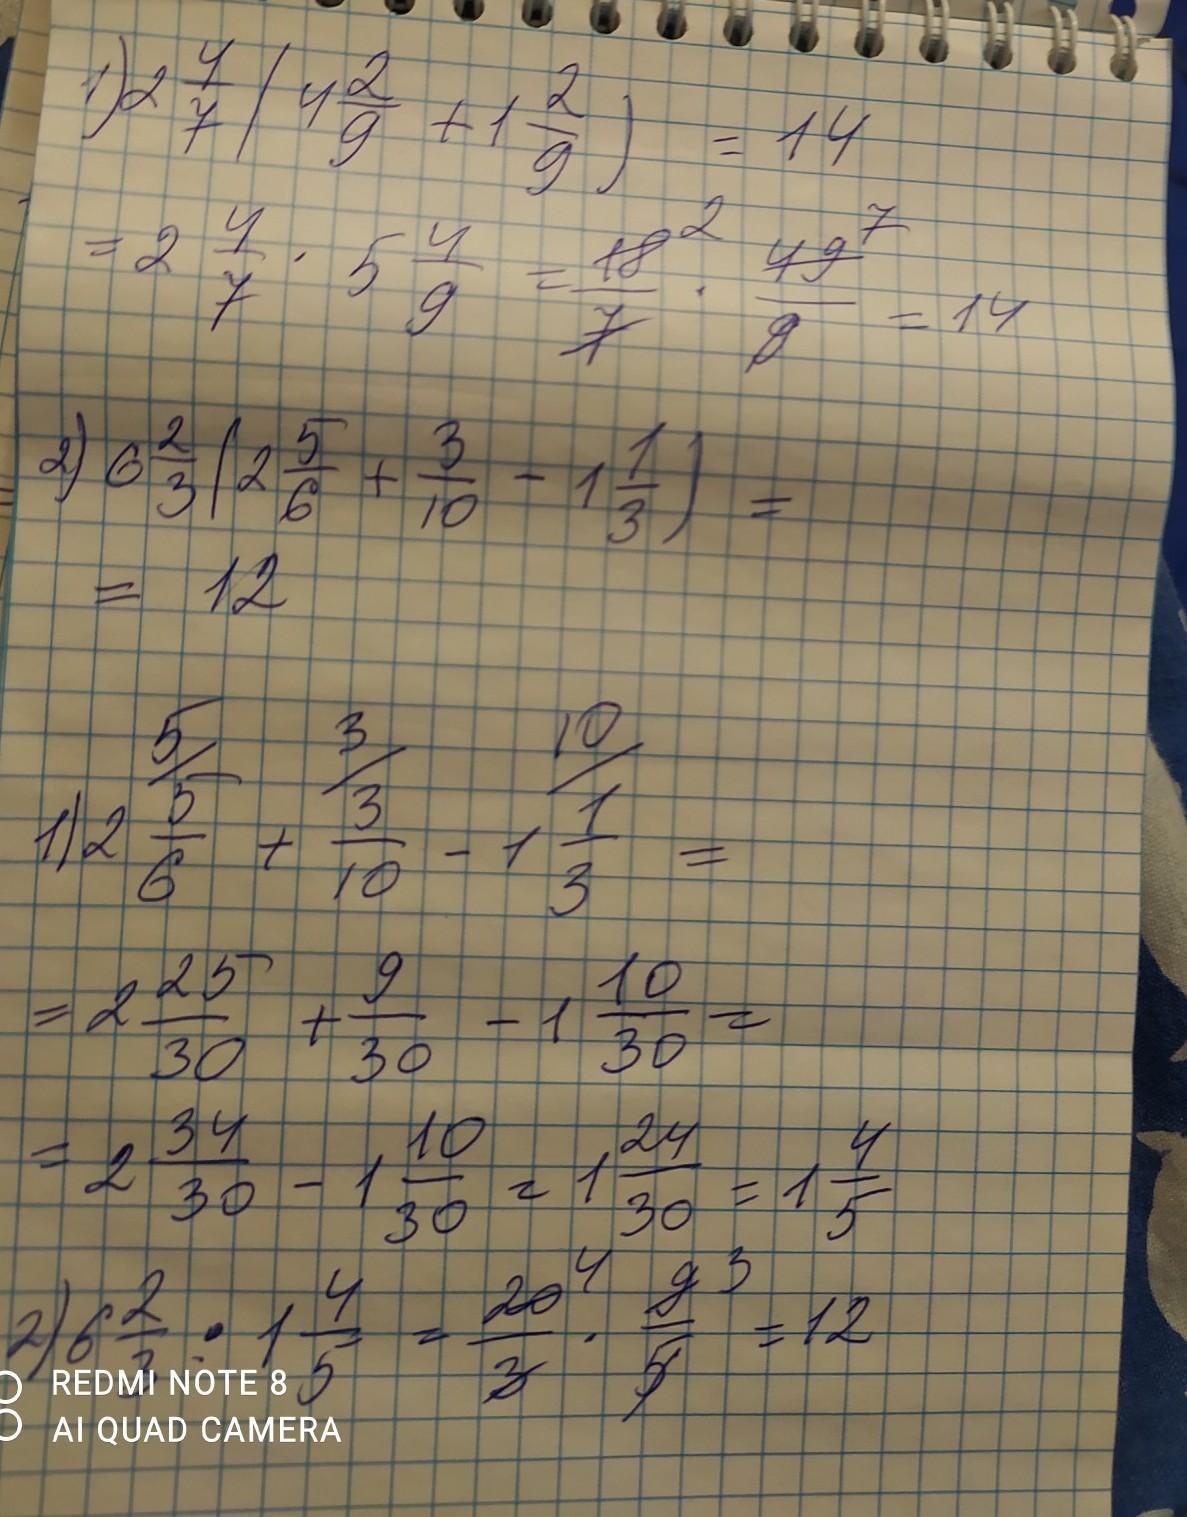 1) 2 4/7 ( 4 2/9 + 1 2/9 ) = 14
= 2 4/7 · 5 4/9 = 18²/7 · 49⁷/9 = 14
2) 6 2/3 ( 2 5/6 + 3/10 - 1 1/3 ) =
= 12
5/ 3/ 10/
1) 2 5/6 + 3/10 - 1 1/3 =
= 2 25/30 + 9/30 - 1 10/30 =
= 2 34/30 - 1 10/30 = 1 24/30 = 1 4/5
2) 6 2/3 · 1 4/5 = 20⁴/3 · 9³/5 = 12
REDMI NOTE 8
AI QUAD CAMERA